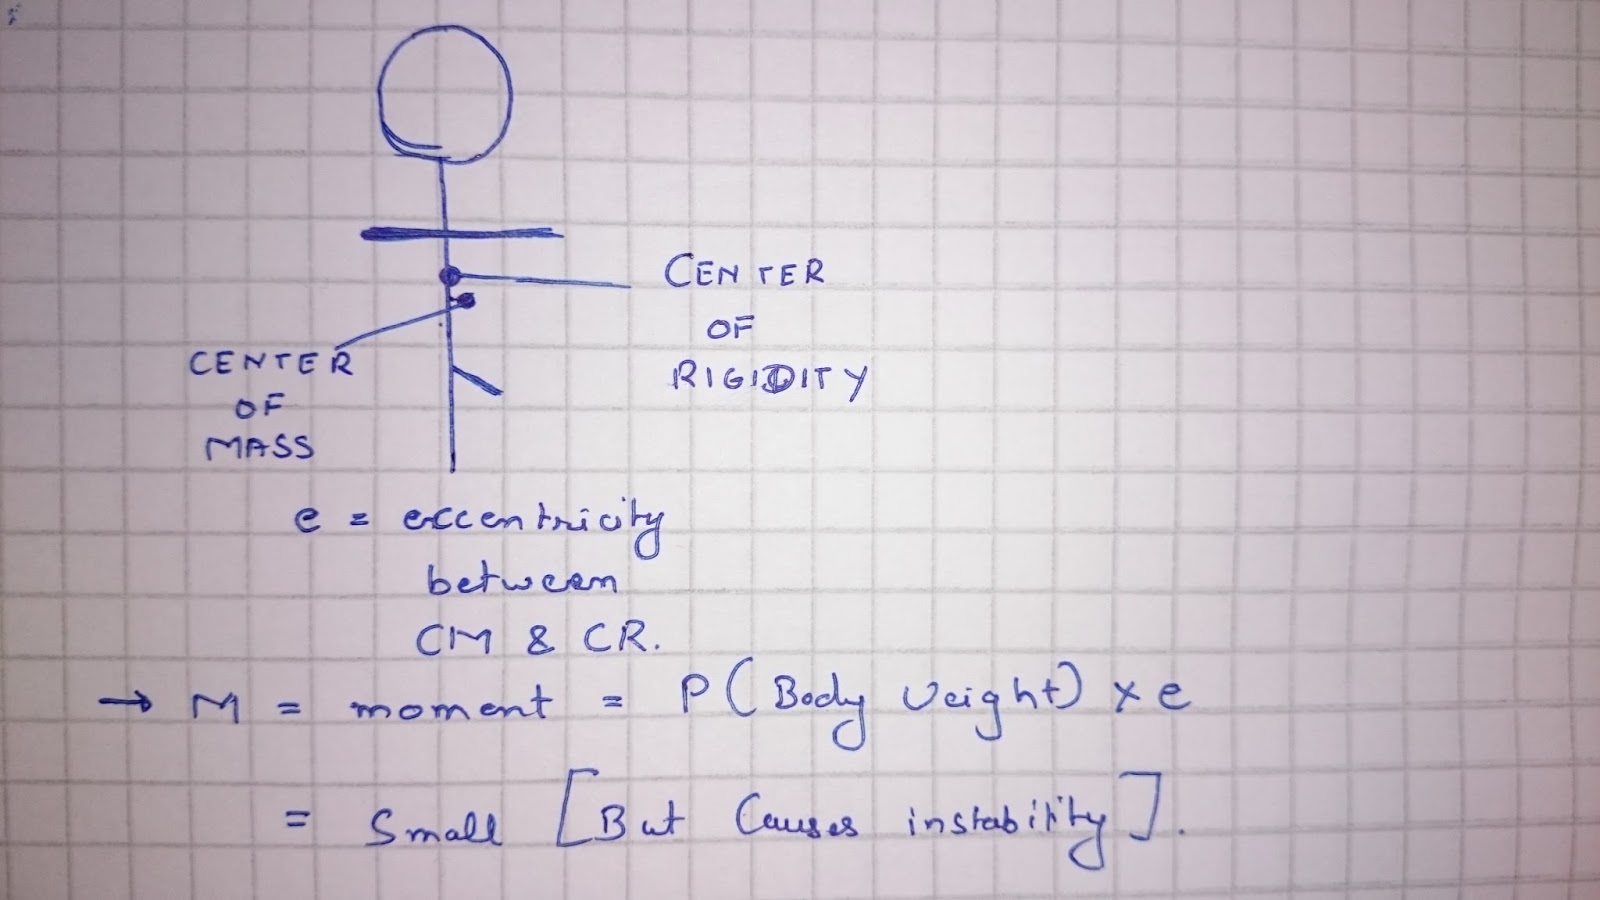 CENTER
OF
RIGIDITY
CENTER
OF
MASS
e = eccentricity
between
CM & CR.
→ M = moment = P (Body Weight) × e
= Small [But Causes instability].